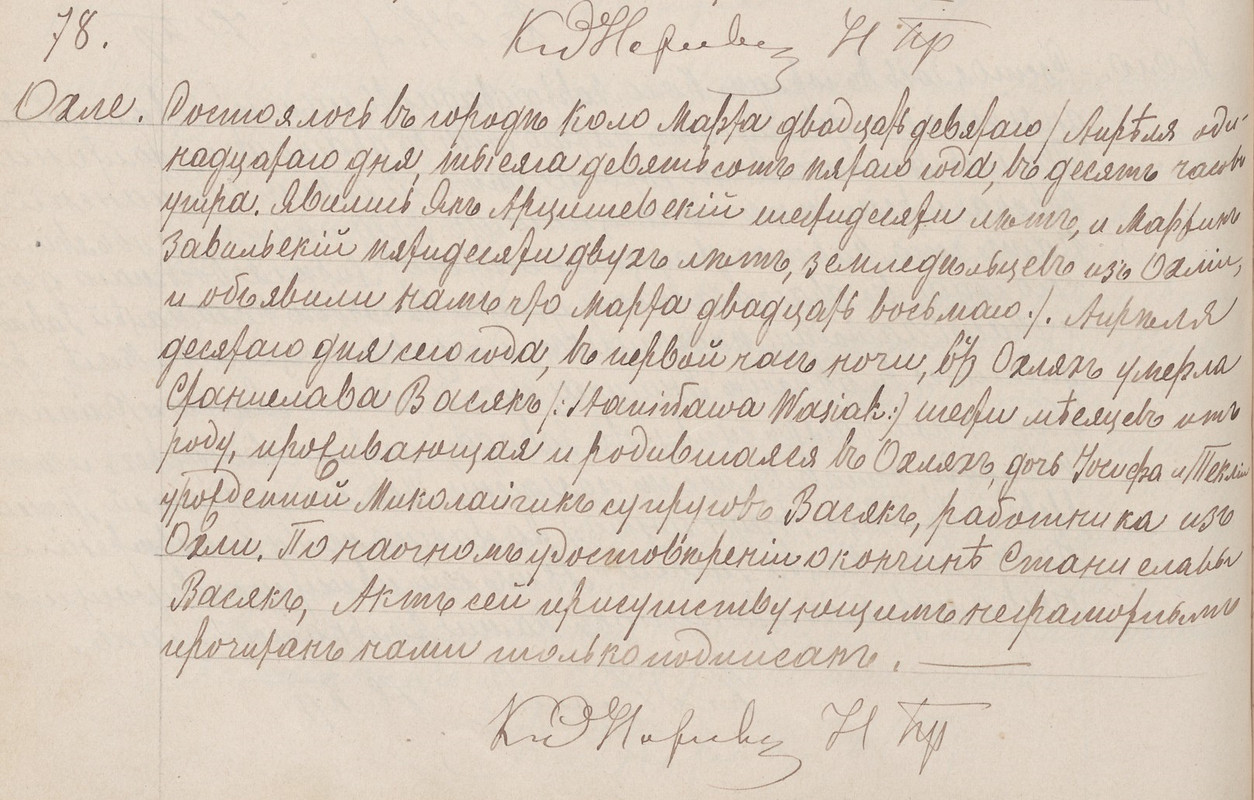 78.
Охле. Состоялось въ городѣ Коло Марта двадцать девятаго / Апрѣля оди-
надцатаго дня, тысяча девятьсотъ пятаго года, въ десять часовъ
утра. Явились Янъ Арцишевскій шестидесяти лѣтъ, и Мартинъ
Завильскій пятидесяти двухъ лѣтъ, земледѣльцевъ изъ Охли,
и объявили намъ что Марта двадцать восьмаго ./. Апрѣля
десятаго дня сего года, въ первой часъ ночи, въ Охляхъ умерла
Станислава Васякъ /: Stanisława Wasiak :/ шести мѣсяцевъ отъ
роду, проживающая и родившаяся въ Охляхъ, дочь Іосифа и Текли
урожденной Миколайчикъ супруговъ Васякъ, работника изъ
Охли. По наочномъ удостовѣреніи о кончинѣ Станиславы
Васякъ, Актъ сей присутствующимъ неграмотнымъ
прочитанъ нами только подписанъ.